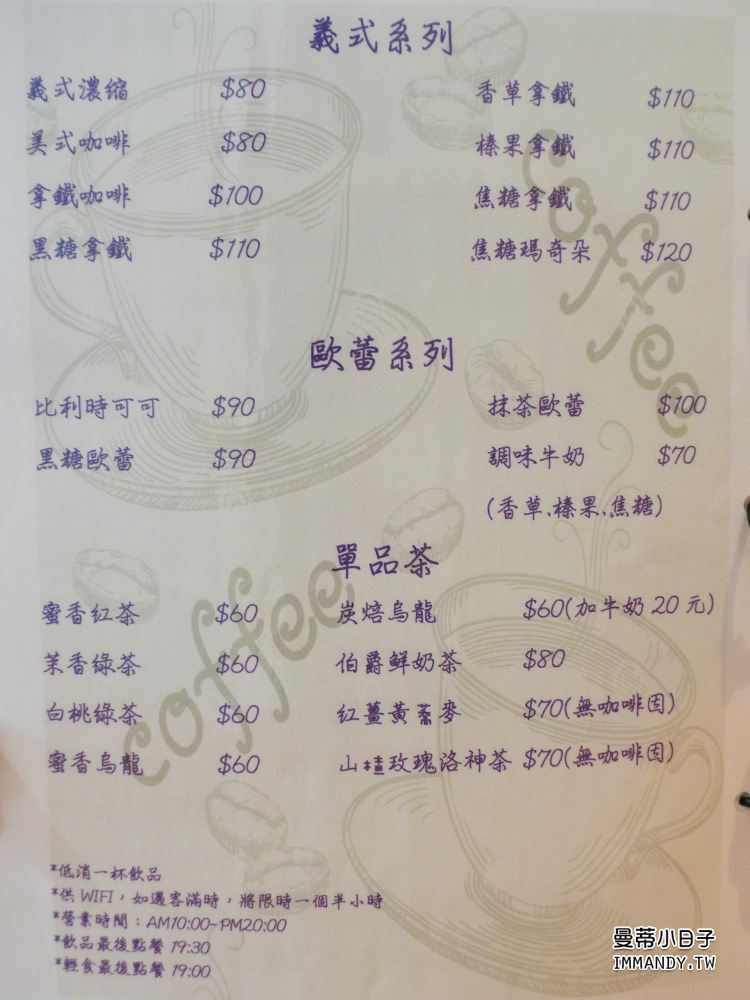 義式系列
義式濃縮 $80 香草拿鐵 $110
美式咖啡 $80 榛果拿鐵 $110
拿鐵咖啡 $100 焦糖拿鐵 $110
黑糖拿鐵 $110 焦糖瑪奇朵 $120
coffee
歐蕾系列
比利時可可 $90 抹茶歐蕾 $100
黑糖歐蕾 $90 調味牛奶 $70
(香草、榛果、焦糖)
單品茶
coffee
蜜香紅茶 $60 炭焙烏龍 $60(加牛奶 20 元)
茉香綠茶 $60 伯爵鮮奶茶 $80
白桃綠茶 $60 紅薑黃蕎麥 $70(無咖啡因)
蜜香烏龍 $60 山楂玫瑰洛神茶 $70(無咖啡因)
*低消一杯飲品
*供 WIFI，如遇客滿時，將限時一個半小時
*營業時間：AM10:00~PM20:00
*飲品最後點餐 19:30
*輕食最後點餐 19:00
曼蒂小日子
IMMANDY.TW